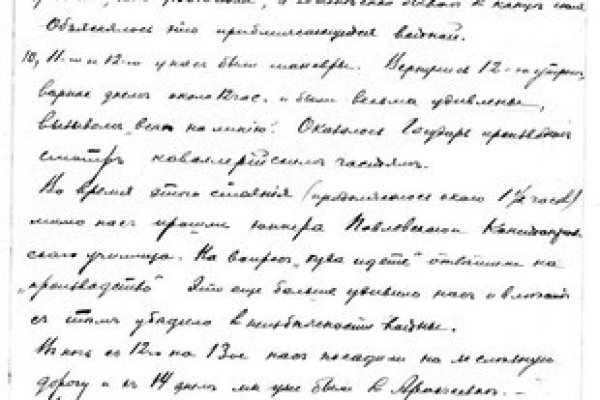 Объяснялось это приближающейся войной.
10, 11-го и 12-го у нас были маневры. Вернулись 12-го утром,
вернее днем около 12 час. и были весьма удивлены,
вызовом „всех на линию“. Оказалось Государь производит
смотр кавалерийским частям.
Во время этого стояния (продолжалось около 1½ часов)
мимо нас прошли юнкера Павловского Константинов-
ского училища. На вопрос „куда идете“ ответили на
„производство“ Это еще больше удивило нас и вместе
с тем убедило в неизбежности войны.
В ночь с 12-го на 13-ое нас посадили на железную
дорогу и к 14 днем мы уже были в